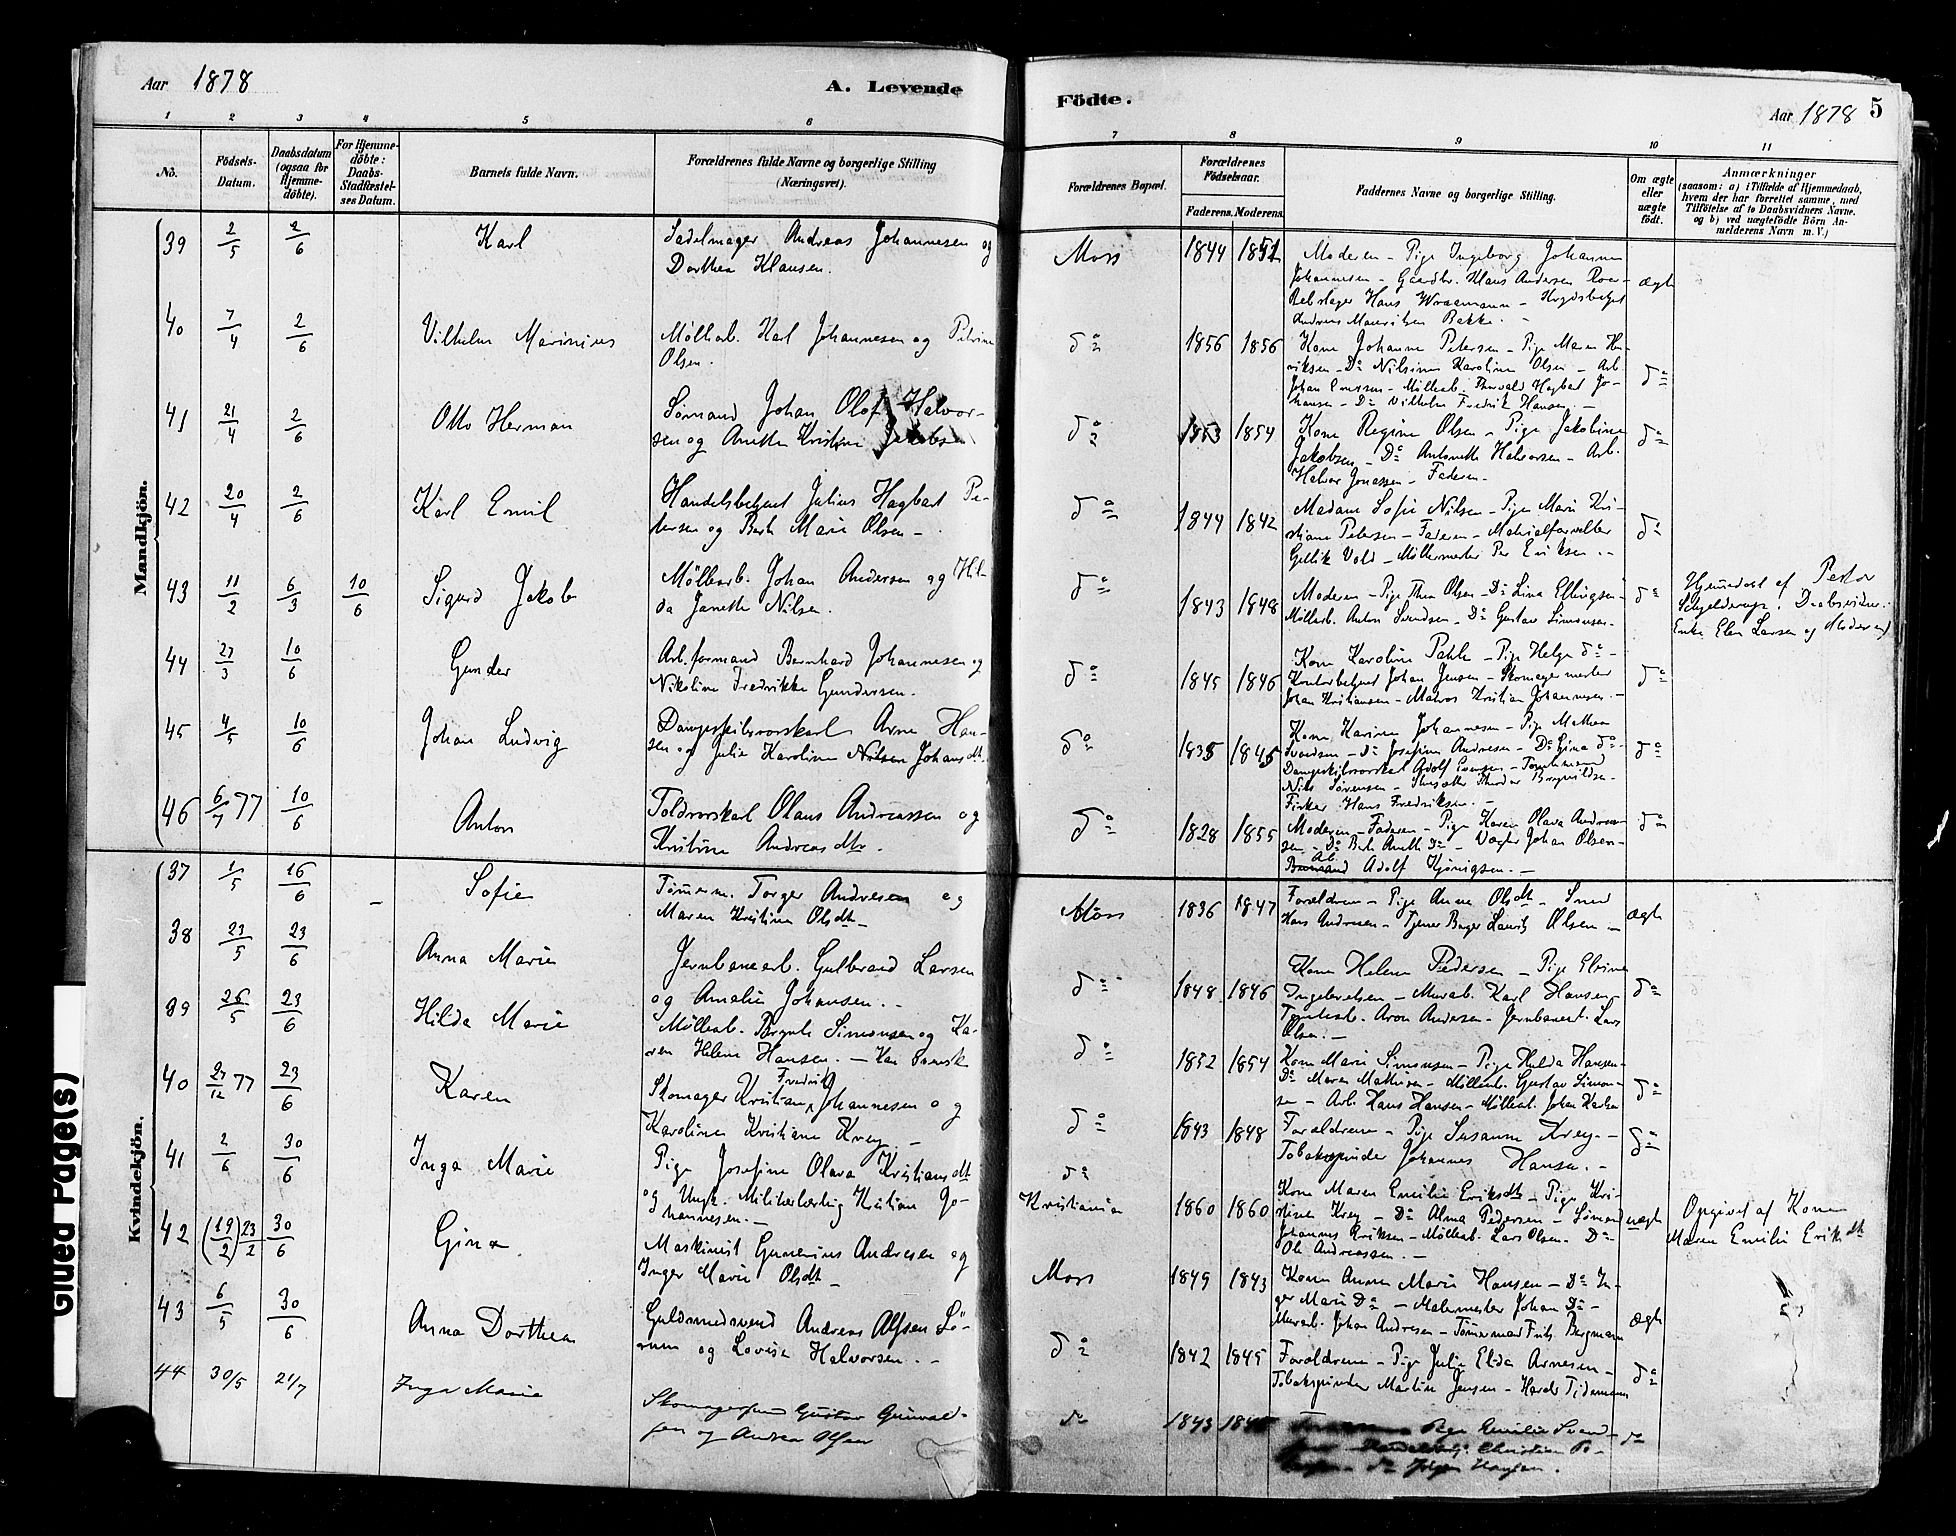 Aar 1878
A. Levende
Födte.
Aar 1878
5
1 2 3 4 5 6 7 8 9 10 11
Nō.
Födsels-
Datum.
Daabsdatum
(ogsaa for
Hjemme-
döbte).
For Hjemme-
döbte:
Daabs-
Stadfæstel-
ses Datum.
Barnets fulde Navn.
Forældrenes fulde Navne og borgerlige Stilling
(Næringsvei).
Forældrenes Bopæl.
Forældrenes
Födselsaar.
Faderens. Moderens.
Faddernes Navne og borgerlige Stilling.
Om ægte
eller
uægte
født.
Anmærkninger
(saasom: a) i Tilfælde af Hjemmedaab,
hvem der har forrettet samme, med
Tilføielse af to Daabsvidners Navne.
og b) ved uægtefödte Börn An-
melderens Navn m. V.)
Mandkjön.
39 2/5 2/6 Karl
Sadelmager Andreas Johannesen og
Dorthea Klausen.
Moss 1844 1851
Moderen - Pige Ingeborg Johanne
Johannesen - Gaardbr. Klaus Andersen
Rebslager Hans
Andreas Mauritsen Bakke. -
ægte
40 7/4 2/6 Vilhelm Marinius
Møllearb. Karl Johannesen og Petrine
Olsen.
do 1856 1856
Kone Johanne Petersen - Pige Maren Hen-
riksen - Do Nilsine Karoline Olsen - Arb.
Johan - Møllearb. Hagbat Jo-
hansen - Do Vilhelm Fredrik Hansen. -
do
41 21/4 2/6 Otto Herman
Sømand Johan Olof Halvor-
sen og Anette Kristine Jakobsen
do 1853 1854
Kone Regine Olsen - Pige Jakobine
Jakobsen - Do Antonette Halvorsen - Arb.
Halvor Jonassen - Faderen -
do
42 20/4 2/6 Karl Emil
Handelsbetjent Julius Hagbat Pe-
tersen og Berte Marie Olsen -
do 1844 1842
Madam Sofie Nilsen - Pige Marie Kri-
stiane Petersen - Faderen - Materialforvalter
Gullik Vold - Møllermester Per Eriksen. -
do
43 11/2 6/3 10/6 Sigurd Jakob
Møllearb. Johan Andersen og Hil-
da Janette Nilsen.
do 1843 1848
Moderen - Pige Thea Olsen - Do Lina Ellingsen
Møllearb. Anton Svendsen - Do Gustav Simonsen -
do
Hjemmedøbt af Pastor
Schjelderup. Daabsvidner:
Enke Elen Larsen og Moderen
44 27/3 10/6 Gunder
Arb.formand Bernhard Johannesen og
Nikoline Fredrikke Gundersen.
do 1845 1846
Kone Karoline - Pige Helga do -
Kontorbetjent Johan Jensen - Skomagermester
Johan Kristiansen - Matros Kristian Johannesen. -
do
45 4/5 10/6 Johan Ludvig
Dampskibsvorskarl Arne Han-
sen og Julie Karoline Nilsen Johansdt.
do 1835 1845
Kone Karine Johannesen - Pige Mathea
Svendsen - do Josefine Andresen - Do Gina do -
Dampskibsvorskarl Adolf Evensen - Tømmermand
Nils Sørensen -
Fisker Hans Fredriksen. -
do
46 6/7 77 10/6 Anton
Toldvorskarl Olaus Andreassen og
Kristine Andreasdtr.
do 1828 1855
Moderen - Faderen - Pige Karen Olava Andreas-
sen - Do Berte Anette do - Vægter Johan Olsen -
Arb. Adolf -
do
Kvindekjön.
37 1/5 16/6 - Sofie
Tømmerm. Torger Andresen og
Maren Kristine Olsdt -
Moss 1836 1847
Forældrene - Pige Anne Olsdt - Smed
Hans Andresen - Tjener Lauritz Olsen -
ægte
38 23/5 23/6 Anna Marie
Jernbanearb. Gulbrand Larsen
og Amalie Johansen. -
do 1848 1846
Kone Helene Pedersen - Pige Elvine
Ingebretsen - Murarb. Karl Hansen -
Tomtearb. Aron Andersen - Jernbanearb. Lars
Olsen. -
do
39 26/5 23/6 Hilda Marie
Møllearb. Bernt Simonsen og Ka-
ren Helene Hansen. - Han Svensk
do 1852 1854
Kone Marie Simonsen - Pige Hulda Hansen -
Do Maren Mathisen - Møllearb. Gustav Simon-
sen - Arb. Hans Hansen - Møllearb. Johan Karlsen
do
40 27/12 77 23/6 Karen
Skomager Kristian Fredrik Johannesen og
Karoline Kristiane Krey. -
do 1843 1848
Forældrene - Pige Susanne Krey. -
Tobakspinder Johannes Hansen. -
do
41 2/6 30/6 Inga Marie
Pige Josefine Olava Kristiansdt
og Ungk. Militærlærling Kristian Jo-
hannesen. -
do
Kristiania 1860 1860
Kone Maren Emilie Eriksdt - Pige Kri-
stine Krey - Do Alma Pedersen - Sømand
Johannes Eriksen - Møllearb. Lars Olsen - Do
Ole Andreassen. -
uægte
Opgivet af Kone
Maren Emilie Eriksdt
42 (19/2) 23/2 30/6 Gina.
Maskinist Gunerius Andresen og
Inger Marie Olsdt -
Moss 1849 1843
Kone Anne Marie Hansen - Do In-
ger Marie Do - Malermester Johan Do -
Murarb. Johan Andresen - Tømmermand Frits Bergmann
ægte
43 6/5 30/6 Anna Dorthea
Guldsmedsvend Andreas Alfsen Sö-
rum og Lovise Halvorsen. -
do 1842 1845
Forældrene - Pige Julie Elida Arnesen -
Tobakspinder Martin Jensen - Tidemann
do
44 30/5 21/7 Inga Marie
Gustav Grünvald-
sen og Andrea Olsen
do 1843
Pige Emilie Svend-
Christian Pe-
do Hansen.
do
Glued Page(s)